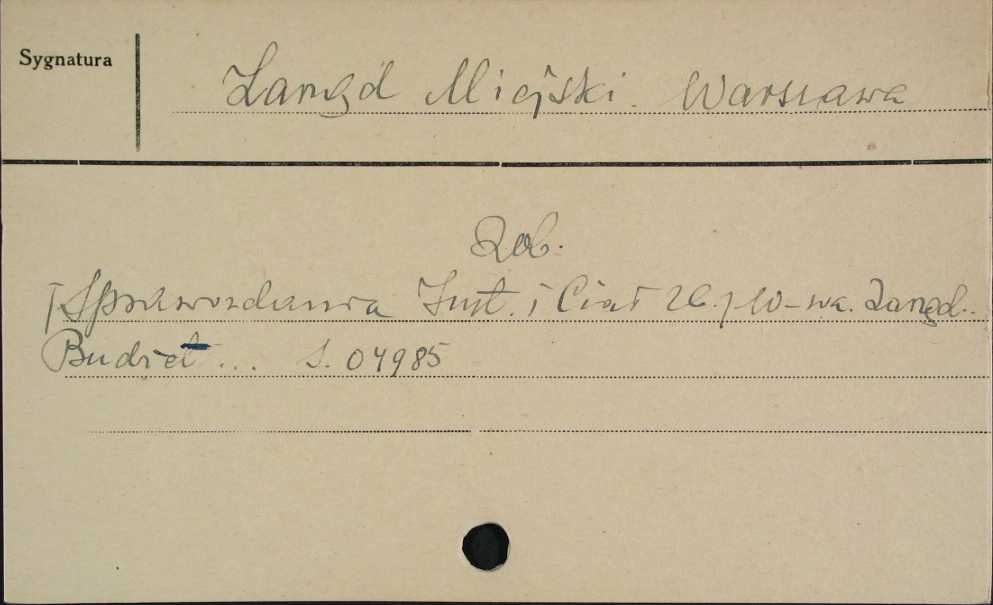 Sygnatura
Zarząd Miejski. Warszawa
Zob.
[Sprawozdania Inst. i Ciał Zb.] W-wa. Zarząd..
Budżet ... S. 04985